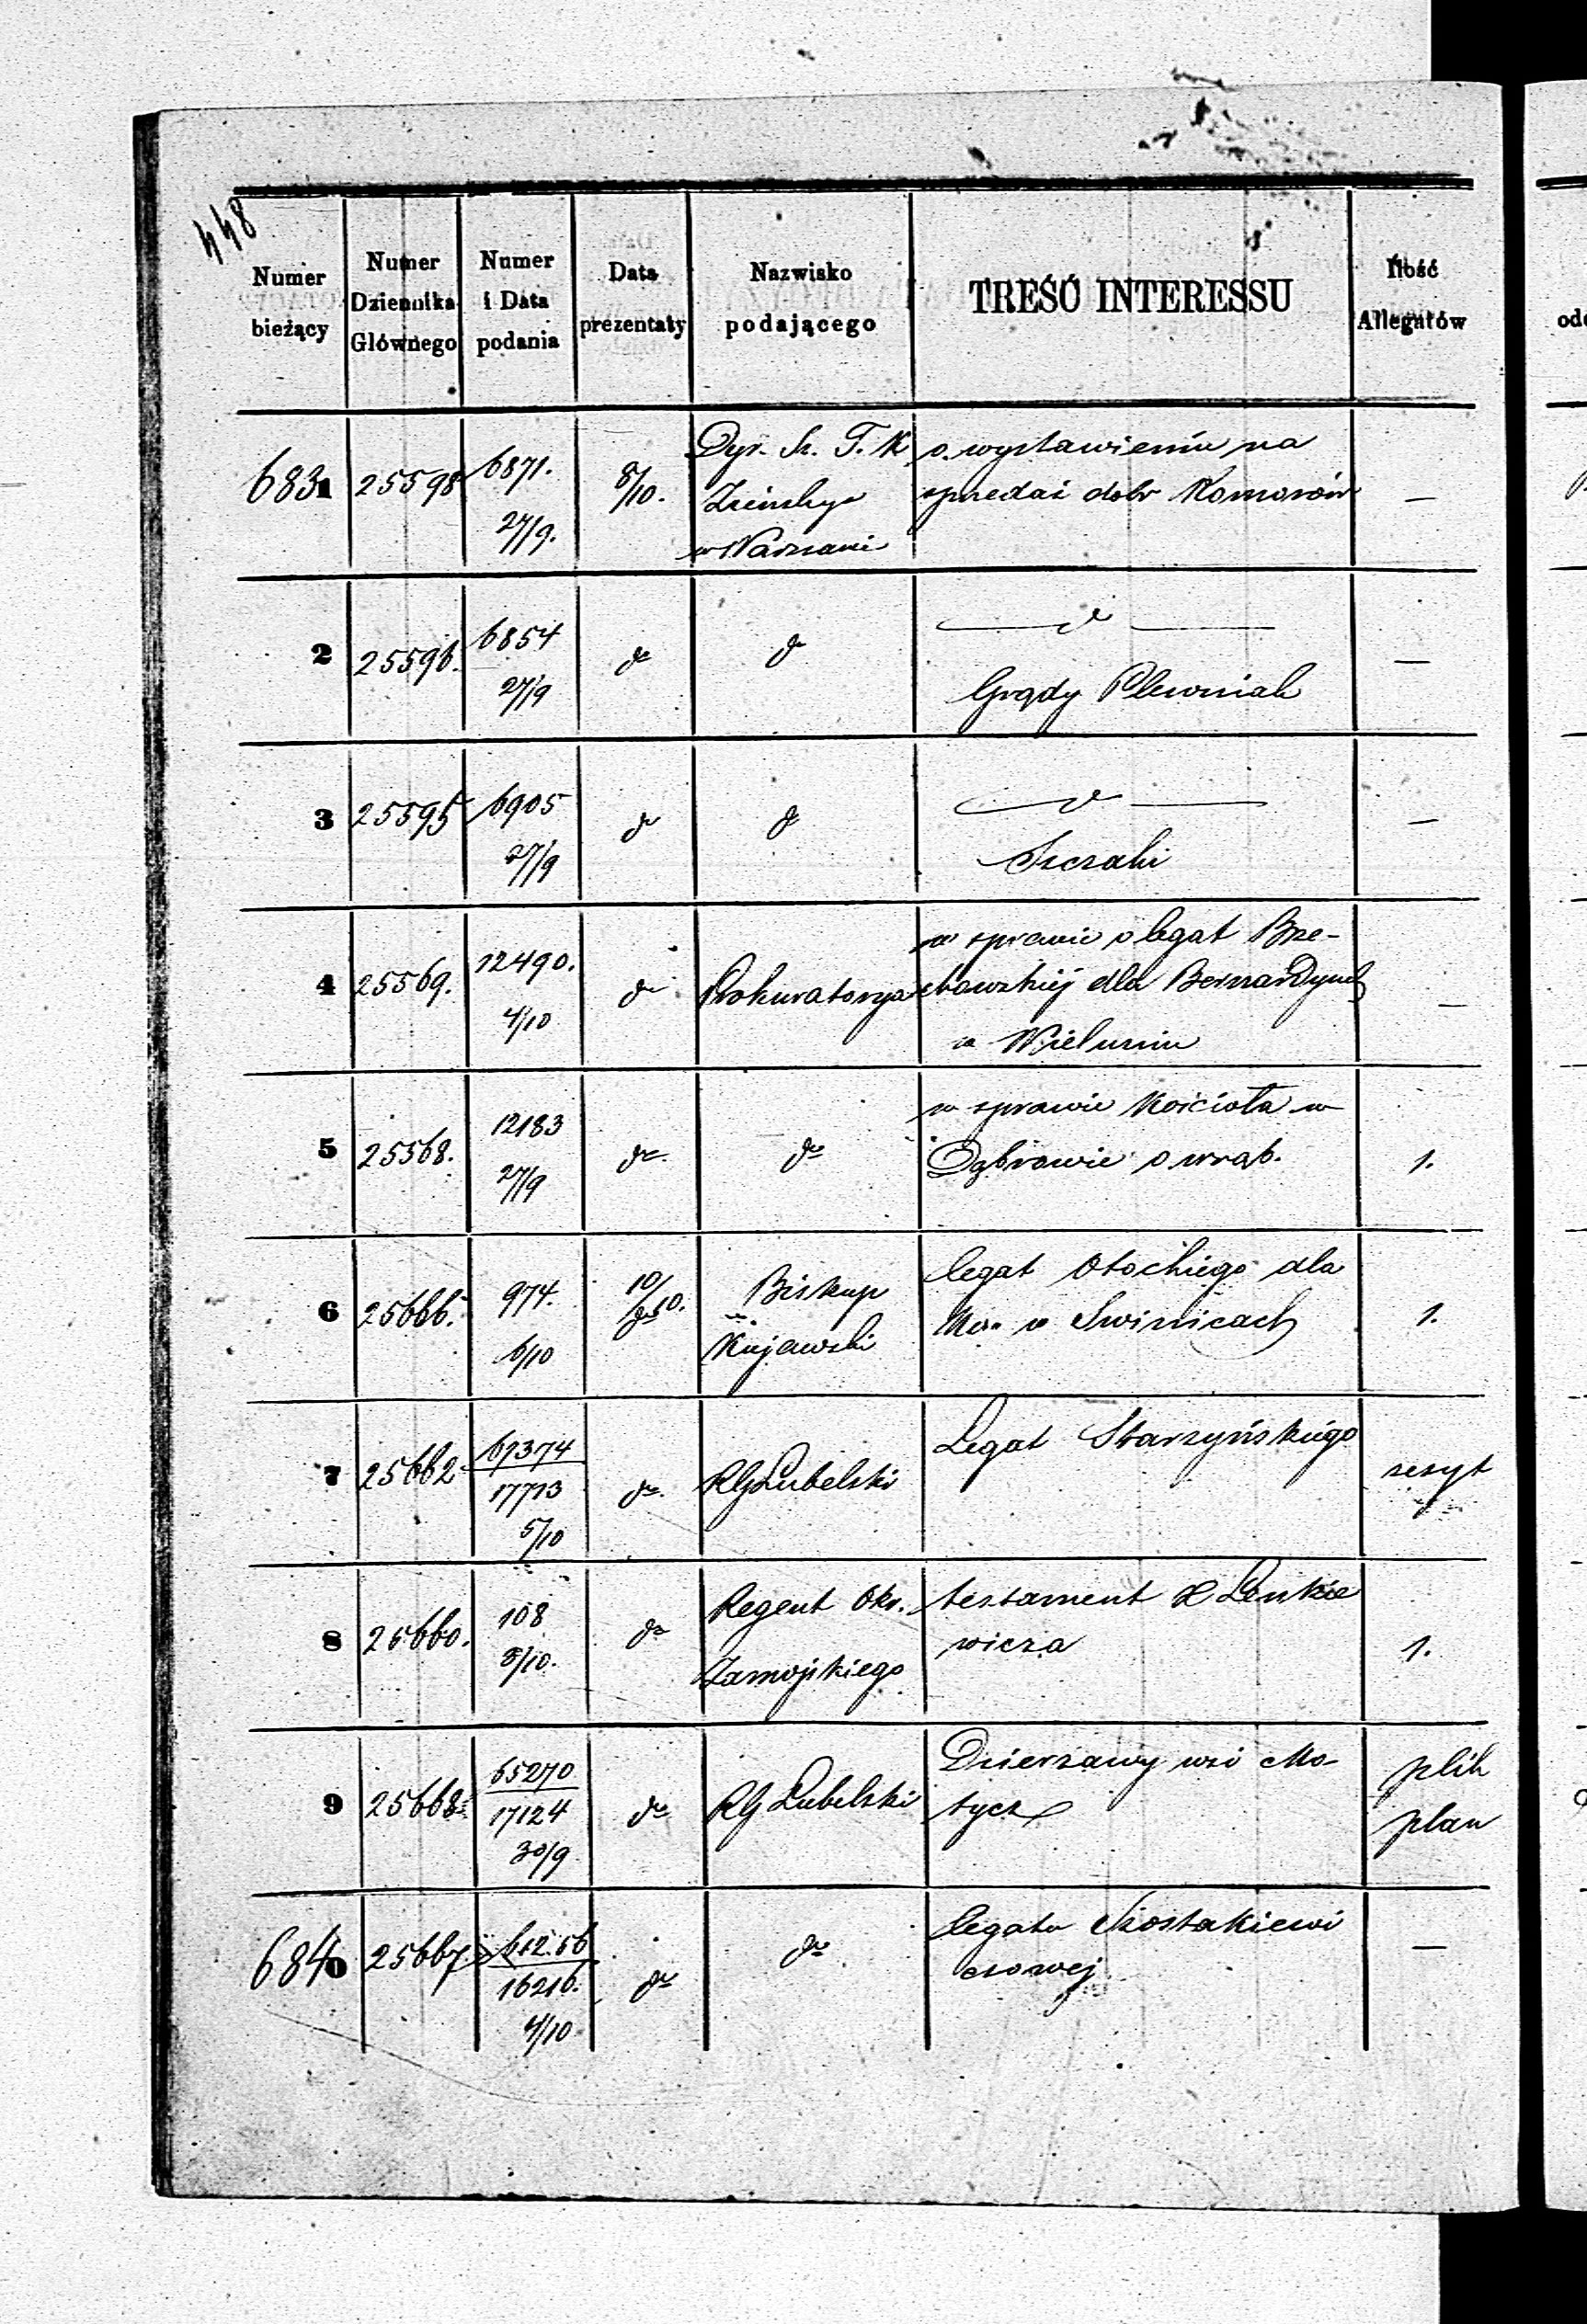 448
Numer bieżący | Numer Dziennika Głównego | Numer i Data podania | Data prezentaty | Nazwisko podającego | TREŚĆ INTERESSU | Ilość Allegatów
6831 | 25598 | 6871. 27/9. | 8/10. | Dyr. Sz. T. K. Ziemskye w Warszawie | o wystawieniu na sprzedaż dobr Komorów | —
2 | 25596. | 6854 27/9 | do | do | — do — Grądy Plewniak | —
3 | 25595 | 6905 27/9 | do | do | — do — Szczaki | —
4 | 25569. | 12490. 4/10 | do | Prokuratorya | w sprawie o legat Brzechowskiej dla Bernardynek w Wieluniu | —
5 | 25568. | 12183 27/9 | do. | do | w sprawie Kościoła w Dąbrowie o wrąb. | 1.
6 | 25666. | 974. 6/10 | 10/10. | Biskup Kujawski | legat Otockiego dla Ko. w Swinicach | 1.
7 | 25662 | 67374 17713 5/10 | do. | RGLubelski | Legat Starzyńskiego | zeszyt
8 | 25660. | 108 8/10. | do | Regent Okr. Zamojskiego | testament X Lenkiewicza | 1.
9 | 25668. | 65270 17124 30/9 | do | RG Lubelski | Dzierzawy wsi Motycz | plik plan
6840 | 25667. | 612.56 16216. 4/10 | do | do | legatu Szostakiewiczowej | —